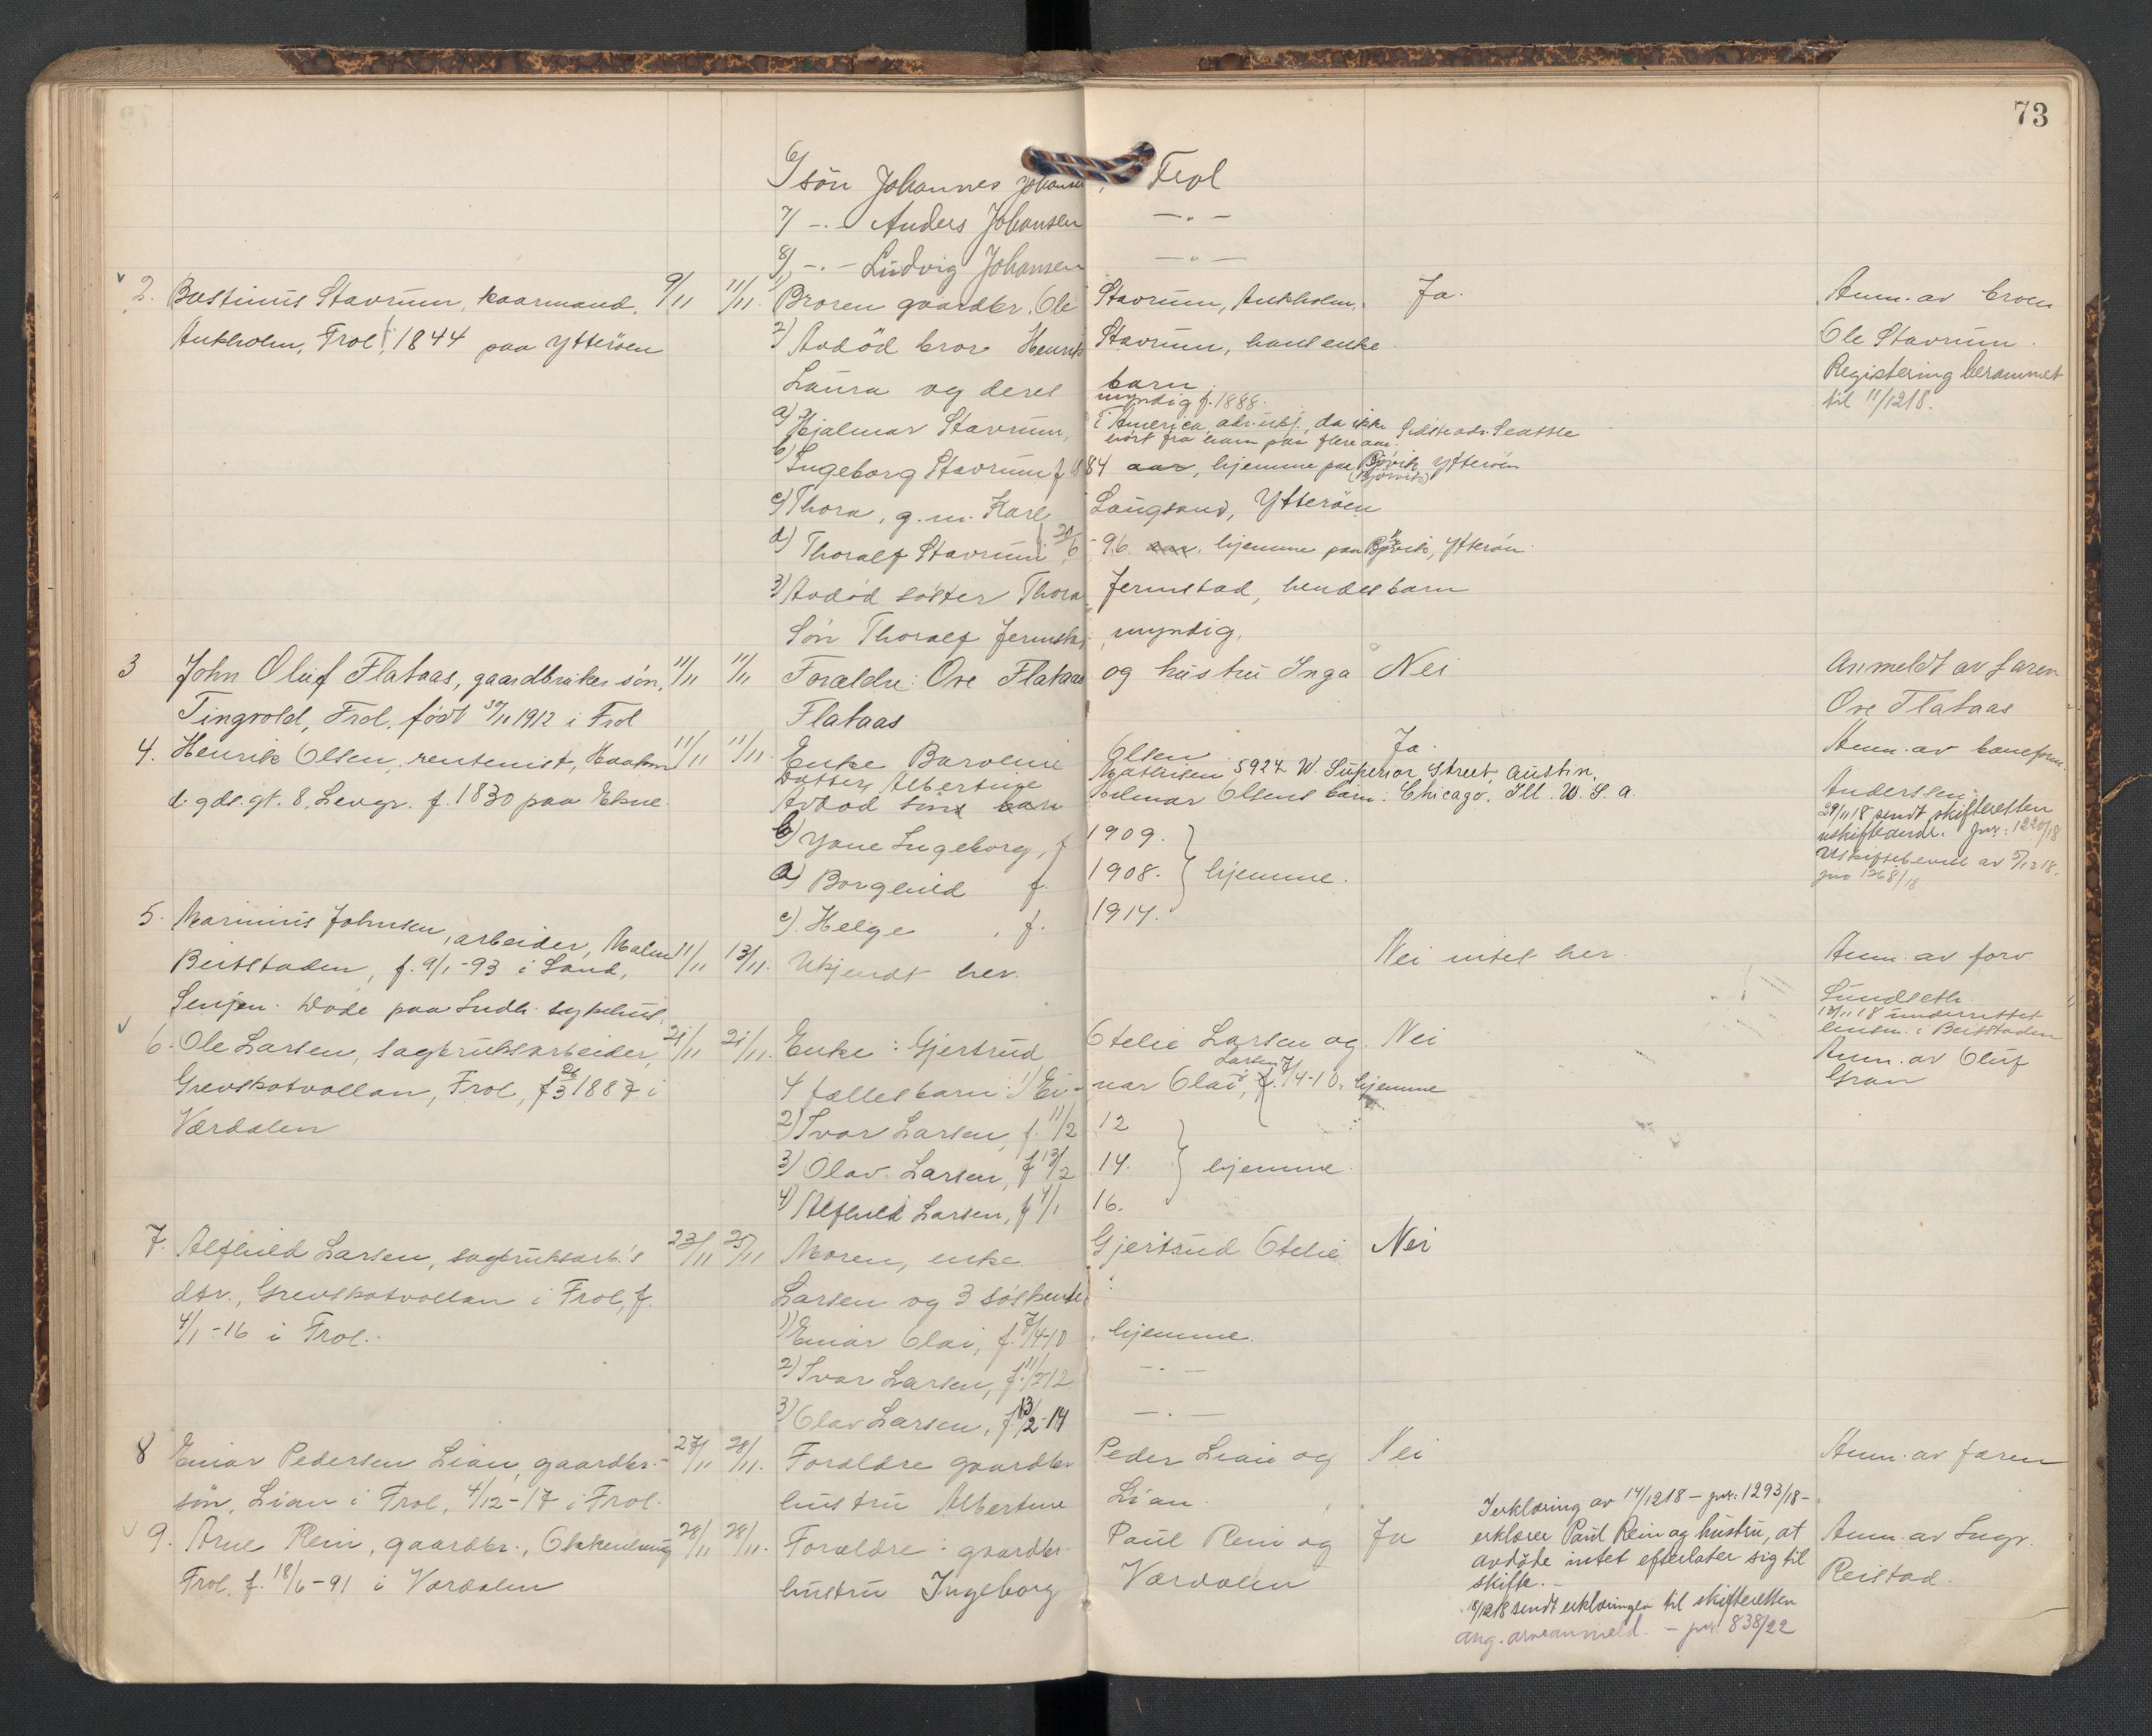 73
6/ sön Johannes Johans , Frol
7/ -"- Anders Johansen -"-
8/ -"- Ludvig Johansen -"-
2. Bastinus Stavrum, kaarmand, 9/11 11/11. 1) Broren gaardbr. Ole Stavrum, Ankholm, Ja. Anm. av broren
Ankholm, Frol f. 1844 paa Ytterøen 2) Avdöd bror Henrik Stavrum, hans enke Ole Stavrum.
Laura og deres barn Registering berammet
myndig f. 1888. til 11/12 18.
a) Hjalmar Stavrum, i America, adr. ubk., da ikke Sidste adr. Seattle
hört fra ham paa flere aar.
b) Ingeborg Stavrum f 1884 aar, hjemme paa Bjøvik, Ytterøen
(Bjørvik)
c) Thora, g. m. Karl Laugsand, Ytterøen
d) Thoralf Stavrum f. 20/6 - 96 aar. hjemme paa Bjøvik, Ytterøn.
3) Avdöd söster Thora Jermstad, hendes barn
Sön Thoralf Jermstad, myndig.
3 John Oluf Flataas, gaardbruker sön, 11/11 11/11 Forældre: Ove Flataas og hustru Inga Nei Anmeldt av faren
Tingvold, Frol, født 30/11 1912 i Frol Flataas Ove Flataas
4. Henrik Olsen, rentenist, Haakon 11/11 11/11. Enke Baroline Olsen Ja. Anm. av baneform.
Datter, Albertine Mathisen 5924 W. Superior Street, Austin, Anderssen
d. gds. gt. 8, Levgr. f. 1830 paa Ekne Avdöd söns barn Hilmar Olsens barn: Chicago. Ill. U. S. A.
29/11 18 sendt skifteretten
b) Jane Ingeborg, f 1909. uskifteandr. jnr. 1220/18
a) Borghild f. 1908. } hjemme. Uskiftebevill av 5/12 18.
jnr 1268/18
c). Helge , f. 1914.
5. Marinius Johnsen, arbeider, Malm 11/11 13/11. Ukjendt her. Nei intet her. Anm. av forv
Beitstaden, f. 9/1-93 i Sand, Lundseth.
Senjen. Døde paa Indh. sykehus. 13/11 18 underrettet
lensm. i Beitstaden
6. Ole Larsen, sagbruksarbeider, 21/11 21/11. Enke: Gjertrud Otelie Larsen og Nei Anm. av Oluf
Grevskotvollan, Frol, f 26/3 1887 i 4 fællesbarn: 1) Einar Olai Larsen, f. 7/4-10. hjemme Gran
Værdalen 2) Ivar Larsen, f. 11/2 12
3) Olav Larsen, f 13/2 14. } hjemme.
4) Alfhild Larsen, f 4/1 16.
7. Alfhild Larsen, sagbruksarb.'s 23/11 25/11 Moren, enke Gjertrud Otelie Nei
dtr., Grevskotvollan i Frol, f. Larsen og 3 söskende:
4/1-16 i Frol. 1) Einar Olai, f. 7/4-10, hjemme.
2) Ivar Larsen, f. 11/2 12 -"-
3) Olav Larsen, f. 13/2-14 -"-
8 Einar Pedersen Lian, gaardbr.- 27/11 28/11. Forældre gaardbr Peder Lian og Nei Anm. av faren
sön, Lian i Frol, 4/12-17 i Frol. hustru Albertine Lian.
9. Arne Rein, gaardbr., Okkenhaug 28/11 28/11. Forældre: gaardbr. Paul Rein og Ja Anm. av Ingr.
Frol, f. 18/6-91 i Værdalen hustru Ingeborg Værdalen Reistad.
I erklæring av 14/12 18 - jnr. 1293/18 -
erklærer Paul Rein og hustru, at
avdøde intet efterlater sig til
skifte. -
18/12 18 sendt erklæringen til skifteretten
ang. arveanmeld. - jnr. 838/22